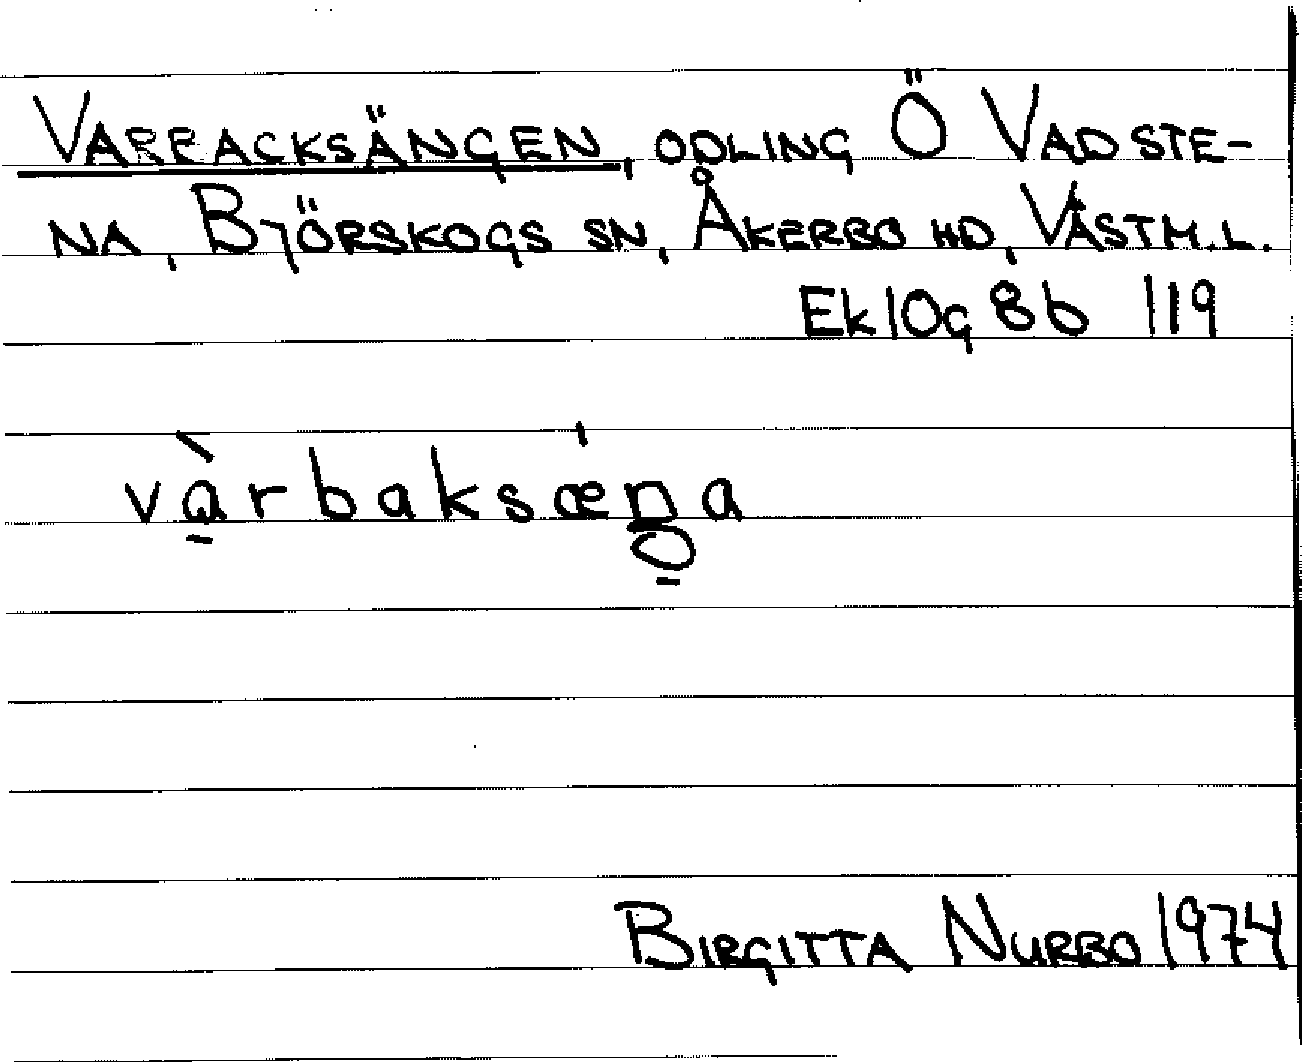 VARBACKSÄNGEN, ODLING Ö VADSTE-
NA, BJÖRSKOGS SN, ÅKERBO HD, VÄSTM.L.
Ek 10g 86 119
vàrbaksæŋa
BIRGITTA NURBO 1974